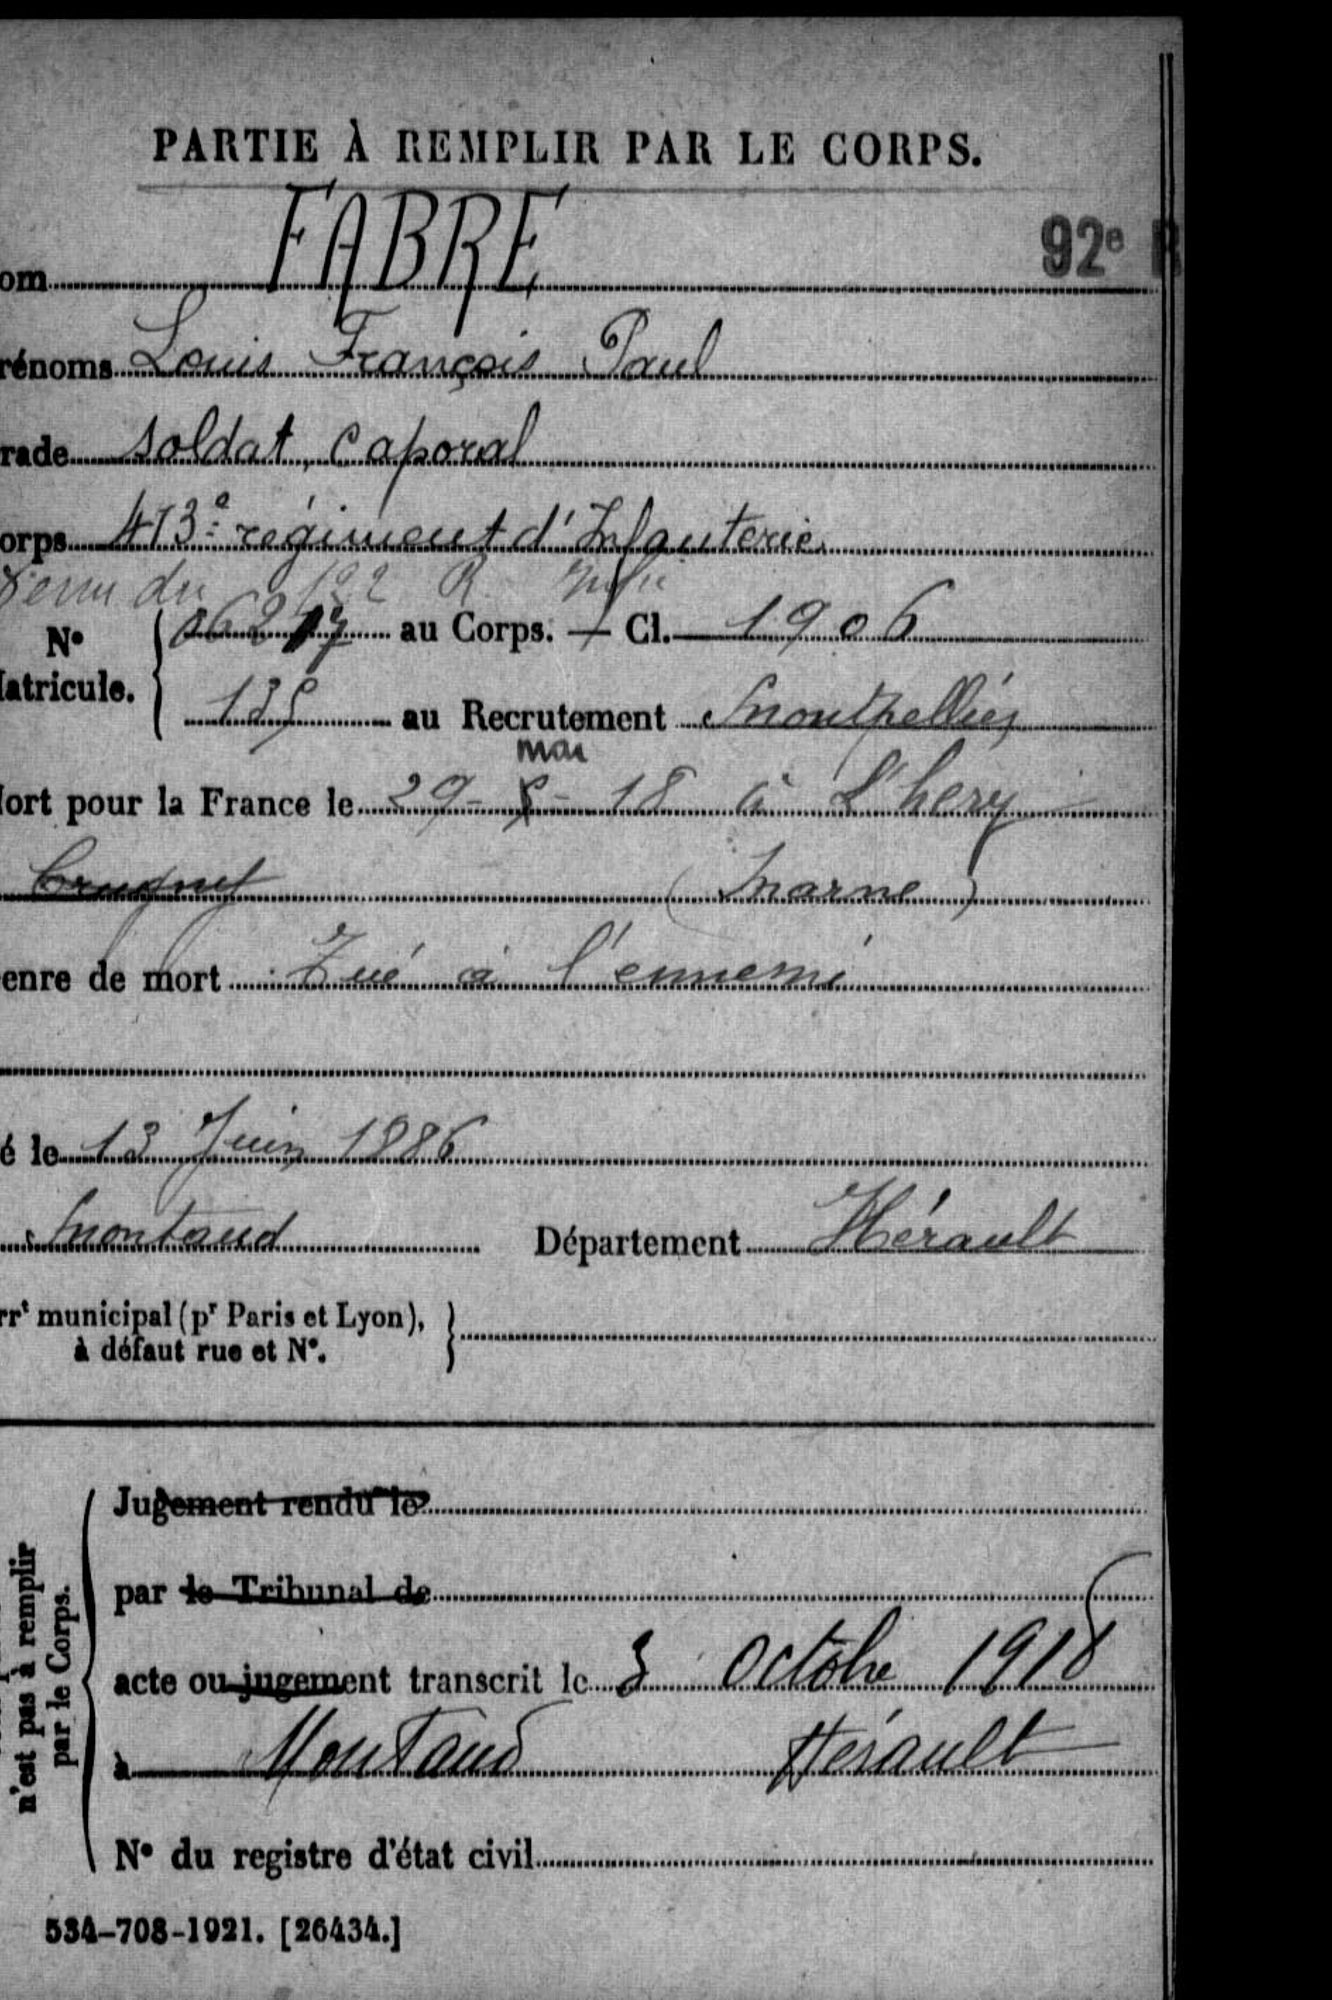 PARTIE À REMPLIR PAR LE CORPS.
92e R
om FABRE
rénoms Louis François Paul
rade soldat, caporal
orps 413e régiment d'Infanterie
Venu du 122 R. Infie
N° atricule. 06217 au Corps. — Cl. 1906
135 au Recrutement Montpellier
mai
ort pour la France le 29-5-18 à L'hery
Crugny (Marne)
enre de mort Tué à l'ennemi
é le 13 Juin 1886
Montaud Département Hérault
rrt municipal (pr Paris et Lyon),
à défaut rue et N°.
n'est pas à remplir
par le Corps.
Jugement rendu le
par le Tribunal de
acte ou jugement transcrit le 3 Octobre 1918
à Montaud Hérault
N° du registre d'état civil
534-708-1921. [26434.]